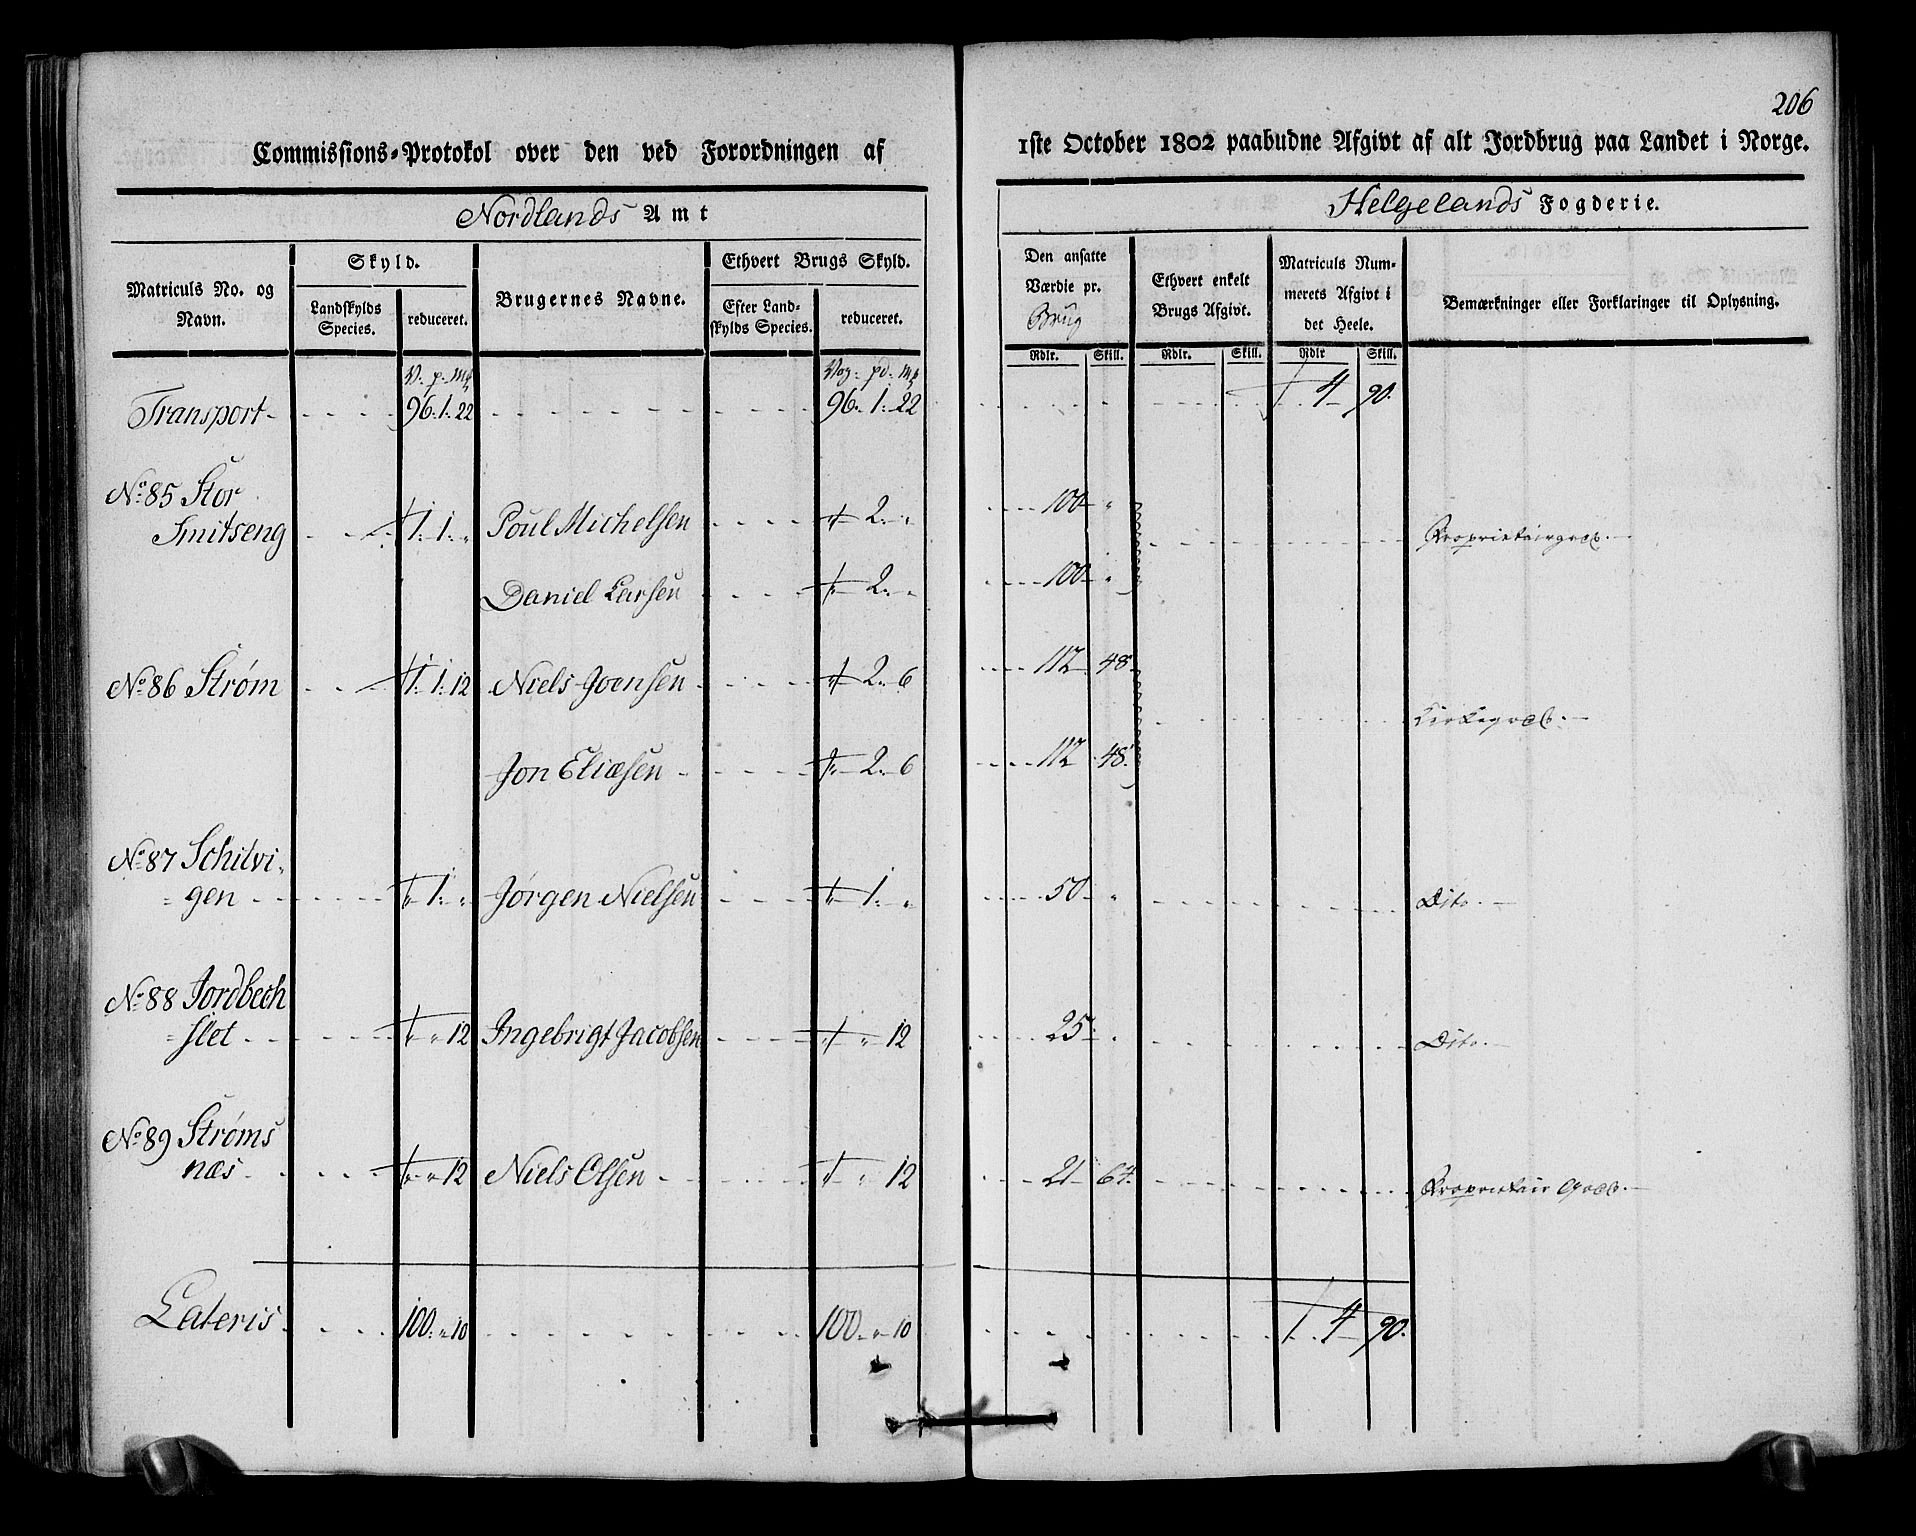 206
Commissions-Protokol over den ved Forordningen af 1ste October 1802 paabudne Afgivt af alt Jordbrug paa Landet i Norge.
Nordlands Amt Helgelands Fogderie.
Matriculs No. og Navn.
Skyld.
Landskylds Species.
reduceret.
Brugernes Navne.
Ethvert Brugs Skyld.
Efter Landskylds Species.
reduceret.
Den ansatte Værdie pr. Brug
Ethvert enkelt Brugs Afgivt.
Matriculs Nummerets Afgivt i det Heele.
Bemærkninger eller Forklaringer til Oplysning.
Rdlr. Skill. Rdlr. Skill. Rdlr Skill.
V: p: Mk Vog: pd: Mk
Transport 96. 1: 22 96. 1: 22 4 90.
No 85 Stor
Smitseng 1: 1: " Poul Michelsen " 2: " 100 " Proprietairgods.
Daniel Larsen " 2: " 100 "
No 86 Strøm 1: 1: 12 Niels Joensen " 2: 6 112 48
Kirkegods.
Jon Eliæsen " 2: 6 112 48.
No 87 Schilvi-
gen " 1: " Jørgen Nielsen " 1: " 50 " Dito.
No 88 Jordbech
slet " " 12 Ingebrigt Jacobsen " " 12 25 " Dito.
No 89 Strøms
næs " " 12 Niels Olsen " " 12 21 64. Proprietair Gods.
Lateris 100: " 10 100 " 10 4 90.